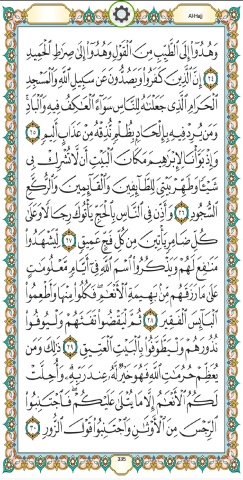 Al-Hajj
وَهُدُوٓا۟ إِلَى ٱلطَّيِّبِ مِنَ ٱلْقَوْلِ وَهُدُوٓا۟ إِلَىٰ صِرَٰطِ ٱلْحَمِيدِ
٢٤ إِنَّ ٱلَّذِينَ كَفَرُوا۟ وَيَصُدُّونَ عَن سَبِيلِ ٱللَّهِ وَٱلْمَسْجِدِ
ٱلْحَرَامِ ٱلَّذِى جَعَلْنَٰهُ لِلنَّاسِ سَوَآءً ٱلْعَٰكِفُ فِيهِ وَٱلْبَادِ
وَمَن يُرِدْ فِيهِ بِإِلْحَادٍۭ بِظُلْمٍ نُّذِقْهُ مِنْ عَذَابٍ أَلِيمٍ ٢٥
وَإِذْ بَوَّأْنَا لِإِبْرَٰهِيمَ مَكَانَ ٱلْبَيْتِ أَن لَّا تُشْرِكْ بِى
شَيْـًٔا وَطَهِّرْ بَيْتِىَ لِلطَّآئِفِينَ وَٱلْقَآئِمِينَ وَٱلرُّكَّعِ
ٱلسُّجُودِ ٢٦ وَأَذِّن فِى ٱلنَّاسِ بِٱلْحَجِّ يَأْتُوكَ رِجَالًا وَعَلَىٰ
كُلِّ ضَامِرٍ يَأْتِينَ مِن كُلِّ فَجٍّ عَمِيقٍ ٢٧ لِّيَشْهَدُوا۟
مَنَٰفِعَ لَهُمْ وَيَذْكُرُوا۟ ٱسْمَ ٱللَّهِ فِىٓ أَيَّامٍ مَّعْلُومَٰتٍ
عَلَىٰ مَا رَزَقَهُم مِّنۢ بَهِيمَةِ ٱلْأَنْعَٰمِ فَكُلُوا۟ مِنْهَا وَأَطْعِمُوا۟
ٱلْبَآئِسَ ٱلْفَقِيرَ ٢٨ ثُمَّ لْيَقْضُوا۟ تَفَثَهُمْ وَلْيُوفُوا۟
نُذُورَهُمْ وَلْيَطَّوَّفُوا۟ بِٱلْبَيْتِ ٱلْعَتِيقِ ٢٩ ذَٰلِكَ وَمَن
يُعَظِّمْ حُرُمَٰتِ ٱللَّهِ فَهُوَ خَيْرٌ لَّهُۥ عِندَ رَبِّهِۦ وَأُحِلَّتْ
لَكُمُ ٱلْأَنْعَٰمُ إِلَّا مَا يُتْلَىٰ عَلَيْكُمْ فَٱجْتَنِبُوا۟
ٱلرِّجْسَ مِنَ ٱلْأَوْثَٰنِ وَٱجْتَنِبُوا۟ قَوْلَ ٱلزُّورِ ٣٠
335